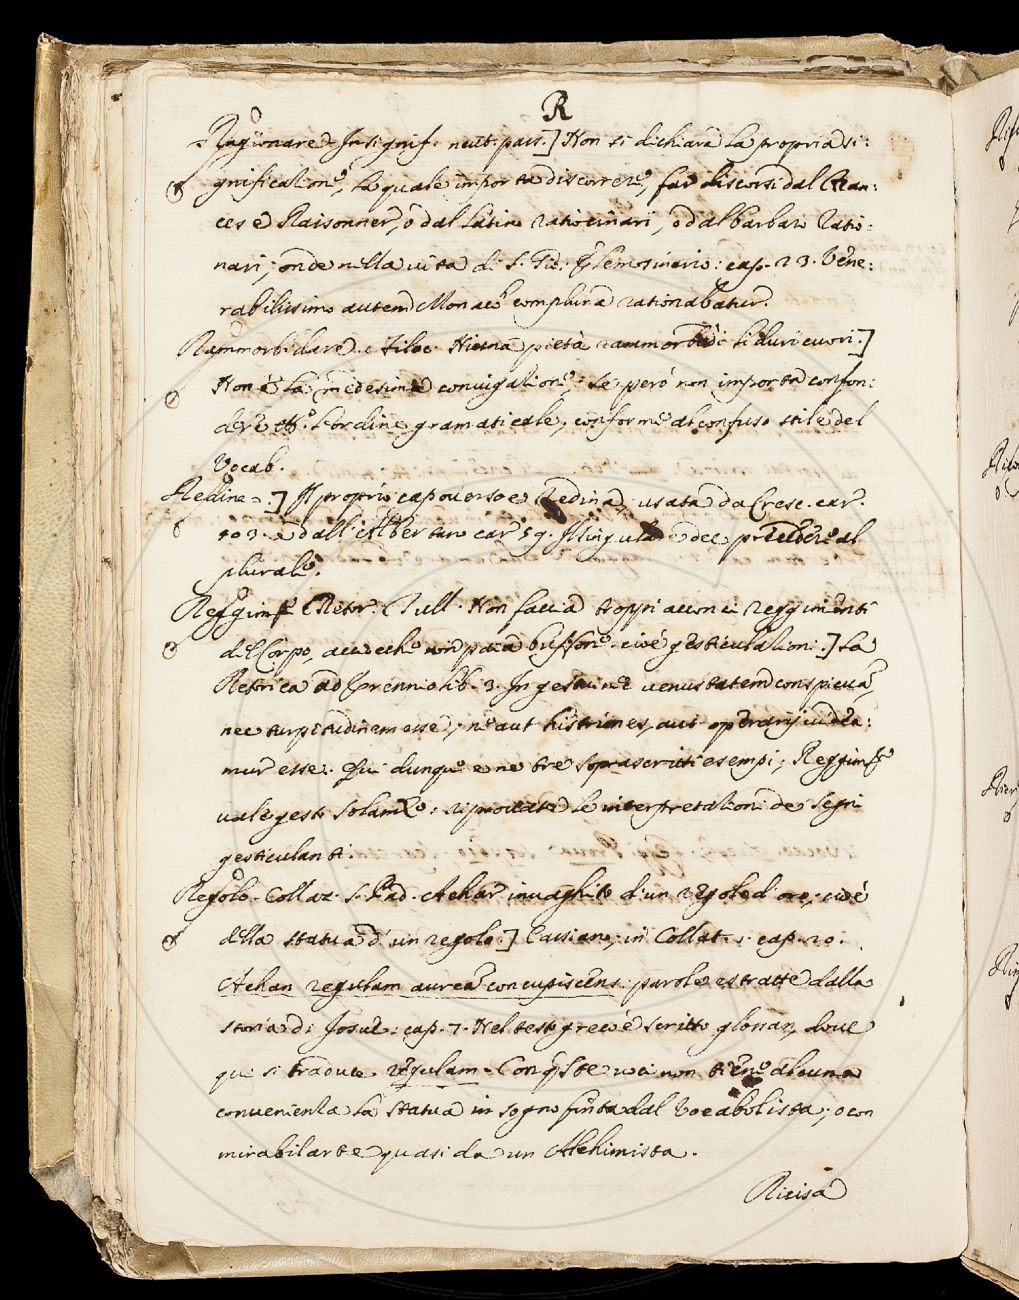 R
Ragionare. In signif. neut. pass.] Non si dichiara la propria si:
gnificatione, la quale importa discorrere, far discorsi dal Fran:
cese Raisonner, ò dal latino ratiocinari, ò dal barbaro ratio:
nari; onde nella vita di S. Gio: Elemosinario: cap. 23. Vene:
rabilissimo autem Monaco complura rationabatur.
Rammorbidare. Filoc. Niuna pietà rammorbidò li duri cuori.]
Non è la medesima coniugatione; se però non importa confon:
dere l'ordine gramaticale, conforme al confuso stile del
Vocab.
Redine.] Il proprio capoverso è Redina, usata da Cresc. car.
103. e dall'Albertano car. 59. Il singulare dee precedere al
plurale.
Reggim.to Retor. Tull. Non faccia troppi acconci reggimenti
del Corpo, acciochè non paia buffone. cioè gesticulationi.] La
Retorica ad Erennio lib. 3. In gestu nec venustatem conspicuam,
nec turpitudinem esse, ne aut histriones, aut operarij videa:
mur esse. Qui dunque e ne tre soprascritti esempi, Reggim.to
vale gesti solam.te: riprovata le interpretationi de segni
gesticulanti.
Regolo. Collaz. S. Pad. Achar invaghito d'un regolo d'oro, cioè
della statua d'un regolo.] Cassiano, in Collat. cap. 20.
Achan regulam auream concupiscens: parole estratte dalla
storia di Josuè: cap. 7. Nel testo greco è scritto glossan, doue
qui si traduce regulam. Con queste voci non tiene alcuna
conuenienza la statua in sogno finta dal Vocabolista; o con
mirabil arte quasi da un Alchimista.
Ricisa